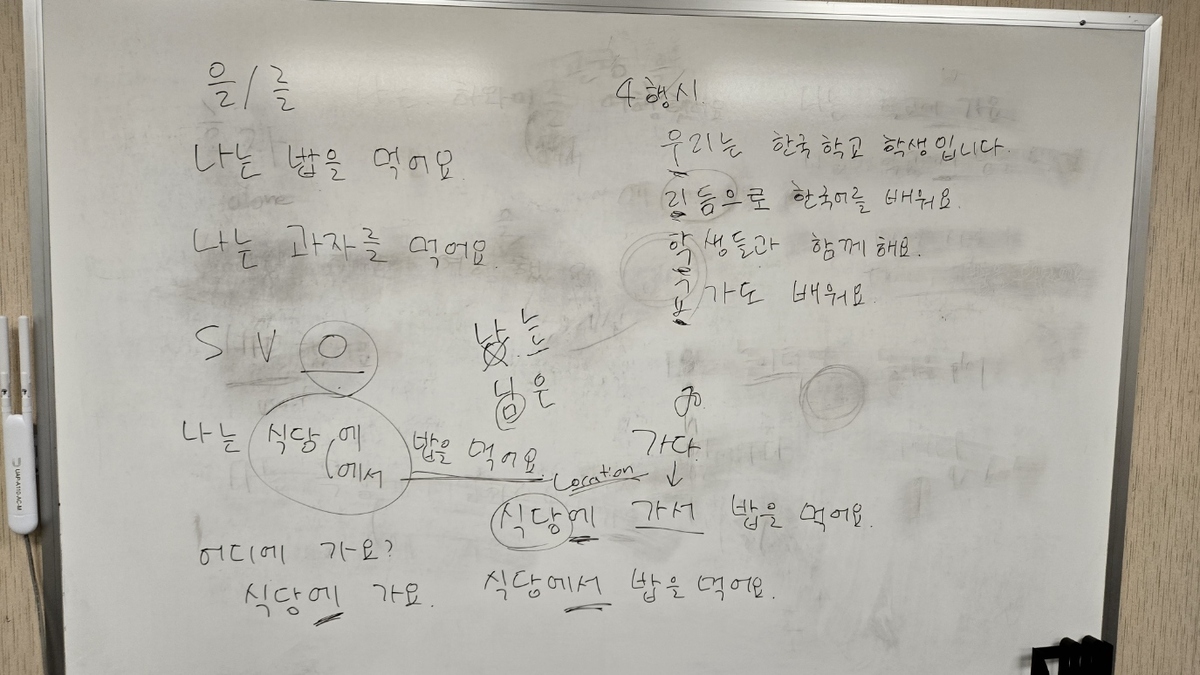 을/를
나는 밥을 먹어요.
나는 과자를 먹어요.
S V O
나는 식당 에 밥을 먹어요.
에서
어디에 가요?
식당에 가요.
4행시.
우리는 한국학교 학생입니다.
리듬으로 한국어를 배워요.
학생들과 함께해요.
가도 배워요.
는
님은
go.
가다.
↓
Location
식당에 가서 밥을 먹어요.
식당에서 밥을 먹어요.